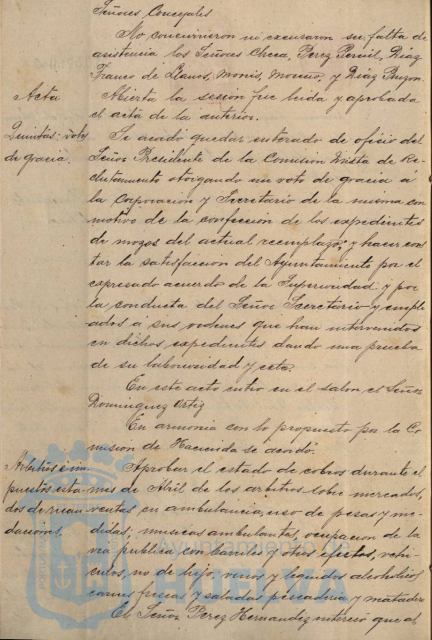 Señores Concejales
No concurrieron ni excusaron su falta de
asistencia los Señores Checa, Perez Porcil, Diaz
Franco de Llanos, Monis, Moreno, y Diaz
Acta
Abierta la sesión fue leida y aprobada
el acta de la anterior.
Quintas: votos
de gracia.
Se acordó quedar enterado de oficio del
Señor Presidente de la Comision Mixta de Re-
clutamiento otorgando un voto de gracia á
la Corporacion y Secretario de la misma con
motivo de la confección de los expedientes
de mozos del actual reemplazo; y hacer cons
tar la satisfacción del Ayuntamiento por el
expresado acuerdo de la Superioridad y por
la conducta del Señor Secretario y emple
ados á sus ordenes que han intervenido
en dichos expedientes dando una prueba
de su laboriosidad y celo.
En este acto entro en el salon el Señor
Dominguez Ortiz
En armonia con lo propuesto por la Co
mision de Hacienda se acordó.
Arbitrios é im
puestos: esta
dos de recau
daciones.
Aprobar el estado de cobros durante el
mes de Abril de los arbitrios sobre mercados,
ventas en ambulancia, uso de pesas y me-
didas; musicas ambulantes, ocupacion de la
via publica con carros y otros efectos, vehi
culos, no de lujo, vinos y liquidos alcoholicos
carnes frescas y saladas pescaderia y matadero
El Señor Perez Hernandez interesó que al
Ayuntamiento de
HUELVA